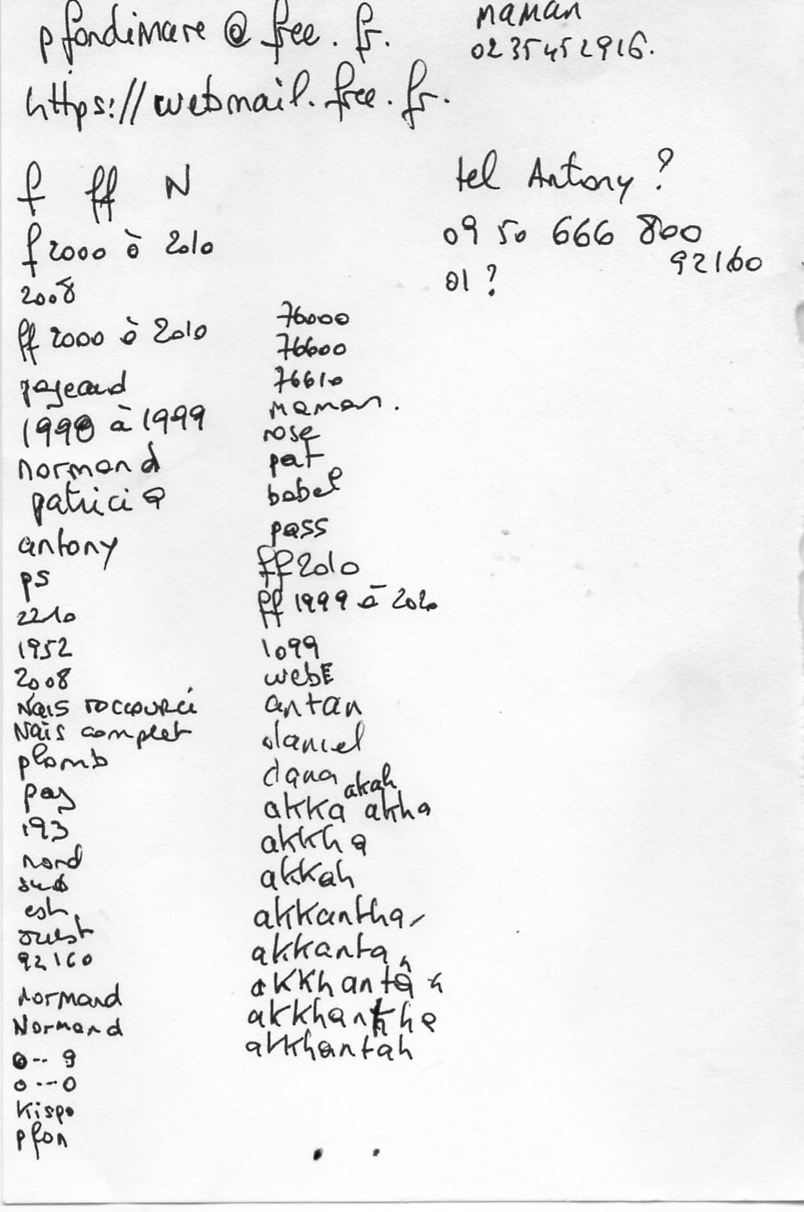 pfondimare @ free.fr.
maman
0235452916.
https://webmail.free.fr.
f ff N
f 2000 à 2010
2008
ff 2000 à 2010
pageaud
1990 à 1999
normand
patricia
antony
ps
2210
1952
2008
Nais raccourci
Nais complet
plomb
pay
193
nord
sud
est
ouest
92160
normand
Normand
0--9
0---0
Kispo
pfon
76000
76600
76610
maman.
rose
pat
babel
pass
ff2010
ff 1999 à 2020
1099
webE
antan
daniel
dana
akah
akka akha
akkha
akkah
akkantha
akkanta
akkhanta h
akkhantha
akkhantah
tel Antony ?
09 50 666 800
92160
01 ?